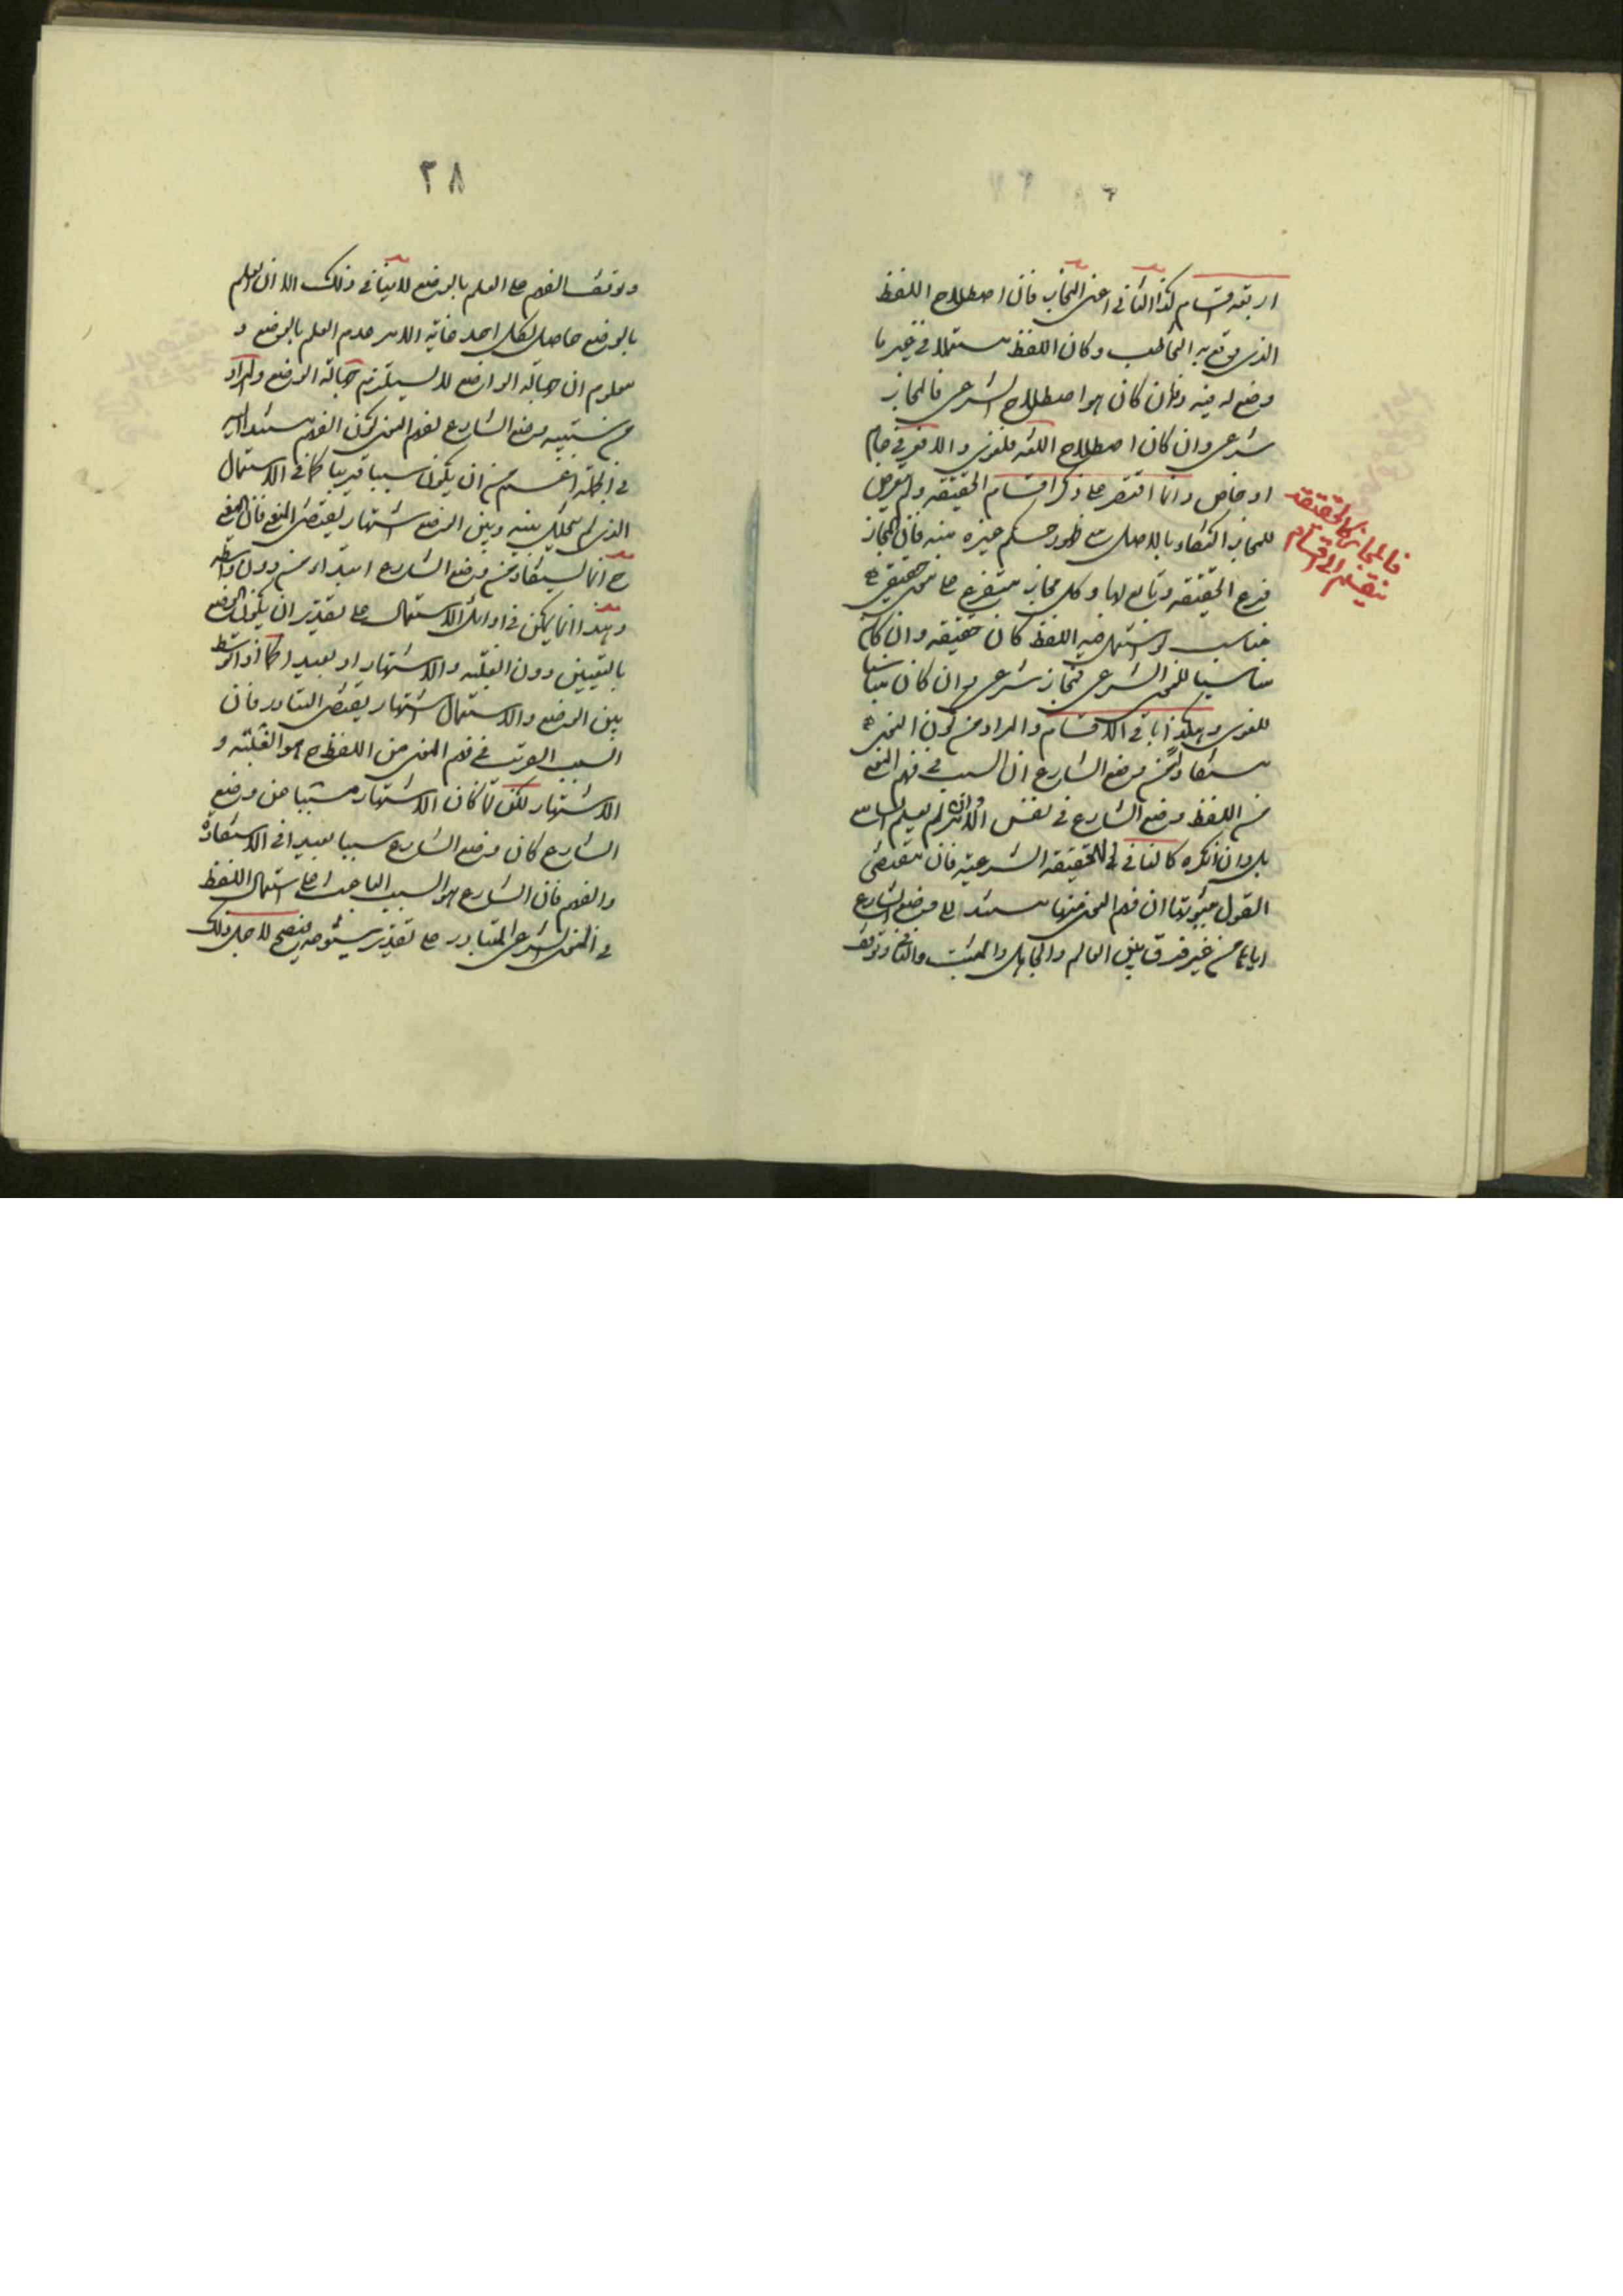 اربعة اقسام كذا الثاني اعني المجاز فان اصطلاح اللفظ
الذي وقع به التخاطب وكان اللفظ مستعملا في غير ما
وضع له فيه وان كان هو اصطلاح الشرعي فالمجاز
شرعي وان كان اصطلاح اللغة فلغوي والا فعرفي عام
او خاص وانما اقتصر على ذكر اقسام الحقيقة ولم يتعرض
للمجاز اكتفاء بالاصل مع ظهور حكم غيره منه فان المجاز
فرع الحقيقة وتابع لها وكل مجاز متفرع على معنى حقيقي
مناسب لو استعمل فيه اللفظ كان حقيقة وان كان
مناسبا للمعنى الشرعي فمجاز شرعي وان كان مناسبا
للغوي وهكذا باقي الاقسام والمراد من كون المعنى
مستفادا من وضع الشارع ان السبب في فهم المعنى
من اللفظ وضع الشارع في نفس الامر وان لم يعلم السامع
بل وان انكره كالنافي للحقيقة الشرعية فان مقتضى
القول بثبوتها ان فهم المعنى منها مستند الى وضع الشارع
اياها من غير فرق بين العالم والجاهل والمثبت والنافي وتوقف
فالمجاز كالحقيقة
ينقسم الى اقسام
٣٨
وتوقف الفهم على العلم بالوضع لا ينافي ذلك الا ان العلم
بالوضع حاصل لكل احد غاية الامر عدم العلم بالوضع و
معلوم ان جهالة الواضع لا يستلزم جهالة الوضع والمراد
من سببية وضع الشارع لفهم المعنى كون الفهم مستندا اليه
في الجملة اعم من ان يكون سببا قريبا كما في الاستعمال
الذي لم يتخلل بينه وبين الوضع اشتهار يقتضي المنع فان المعنى
ح انما يستفاد من وضع الشارع ابتداء من دون واسطة
وهذا انما يمكن في اوائل الاستعمال على تقدير ان يكون الوضع
بالتعيين دون الغلبة والاشتهار او بعيدا كما اذا توسط
بين الوضع والاستعمال اشتهار يقتضي التبادر فان
السبب القريب في فهم المعنى من اللفظ ح هو الغلبة و
الاشتهار لكن لما كان الاشتهار مسببا عن وضع
الشارع كان وضع الشارع سببا بعيدا في الاستفادة
والفهم فان الشارع هو السبب الباعث على استعمال اللفظ
في المعنى الشرعي المتبادر على تقدير ثبوته فيصح لاجل ذلك